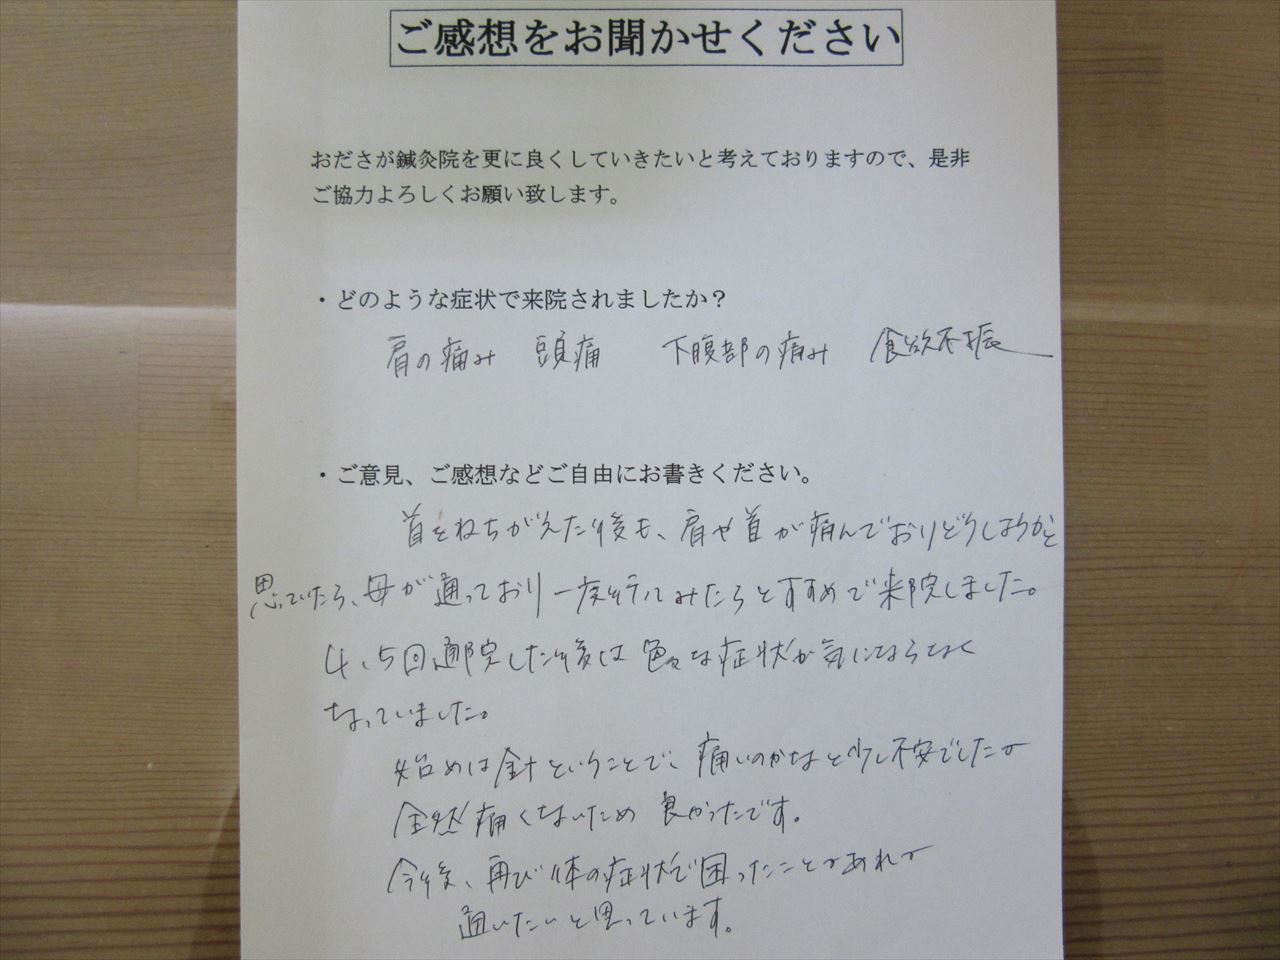 ご感想をお聞かせください
おださが鍼灸院を更に良くしていきたいと考えておりますので、是非
ご協力よろしくお願い致します。
・どのような症状で来院されましたか？
肩の痛み　頭痛　下腹部の痛み　食欲不振
・ご意見、ご感想などご自由にお書きください。
首をねちがえた後も、肩や首が痛んでおりどうしようかと
思っていたら、母が通っており一度行ってみたらとすすめで来院しました。
4、5回通院した後は色々な症状が気にならなく
なっていました。
始めは針ということで、痛いのかなと少し不安でしたが
全然痛くないため良かったです。
今後、再び体の症状で困ったことがあれば
通いたいと思っています。